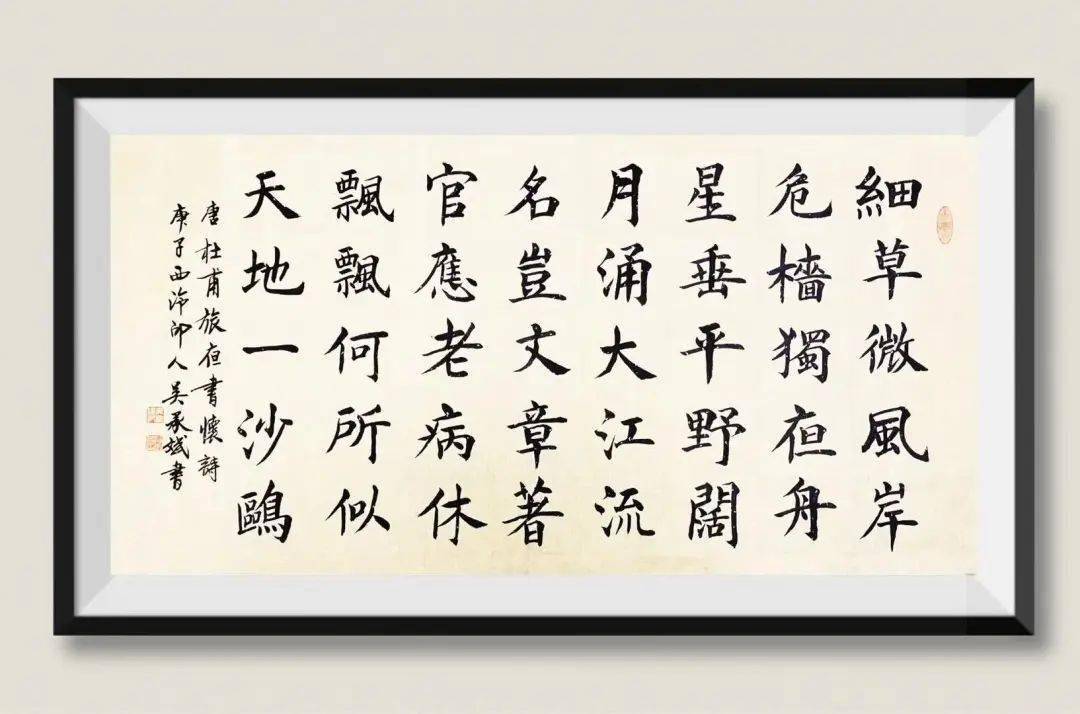 細草微風岸
危檣獨夜舟
星垂平野闊
月涌大江流
名豈文章著
官應老病休
飄飄何所似
天地一沙鷗
唐杜甫旅夜書懷詩
庚子西泠印人吴承斌書